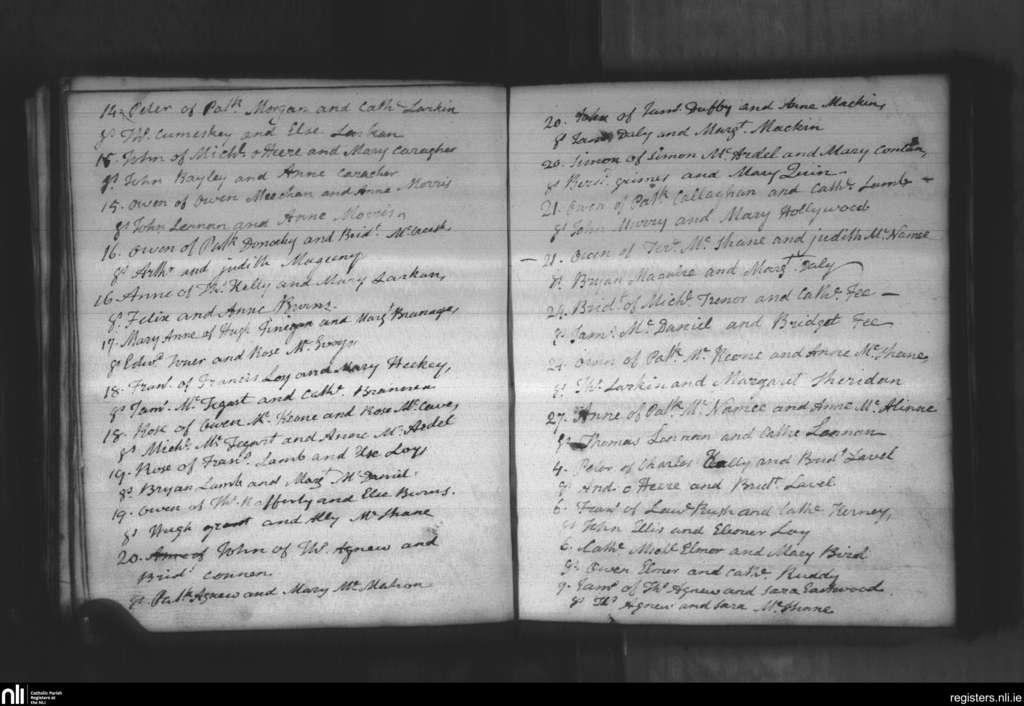 14. Peter of Patk. Morgan and Cath. Larkin
Ss. Ths. Cumeskey and Else Larkan
15. John of Michl. o Heere and Mary Caragher
Ss. John Bayley and Anne Caracher
15. Owen of Owen Meechan and Anne Morris
Ss. John Lennon and Anne Morris
16. Owen of Patk. Donochy and Bridt.
Ss. Arthr. and judith
16 Anne of Ths. Kelly and Mary Larkan,
Ss. Felix and Anne Burns.
17. Mary Anne of Hugh Finegan and Margt. Branagan,
Ss. Edwd. and Rose Mc.
18. Frans. of Francis Loy and Mary Heekey,
Ss. Jams. Mc. Tegart and Cathe.
18. Rose of Owen Mc. Keone and Rose Mc. Cave,
Ss. Michl. Mc. Tegart and Anne Mc. Ardel
19. Rose of Frans. Lamb and Loy
Ss. Bryan Lamb and Margt. Mc. Daniel
19. Owen of Ths. Rafferty and Else Burns.
Ss. Hugh grant and Ally Mc. Shane
20. Anne of John of Ths. Agnew and
Bridt. Connen
Ss. Patk. Agnew and Mary Mc. Mahon
20. John of Jams. Duffby and Anne Mackin,
Ss. James Daly and Margt. Mackin
20. Simon of Simon Mc. Ardel and Mary
Ss. grimes and Mary Quin.
21. Owen of Patk. Callaghan and Cathe. Lamb -
Ss. John Murry and Mary Hollywood
- 21. Owen of Mc. Shane and judith Mc. Namee
Ss. Bryan Maguire and Margt. Daly
24. Bridt. of Michl. Trenor and Cathe. Fee -
Ss. Jams. Mc. Daniel and Bridget Fee
24. Owen of Patk. Mc. Keone and Anne Mc. Shane,
Ss. Ths. Larkin and Margaret Sheridan
27. Anne of Patk. Mc. Namee and Anne Mc. Alinne
Ss. Thomas Lennan and Cathe Lennan
4. Peter of Charles Kelly and Bridt. Lavel
Ss. And. o Heere and Bridt. Lavel.
6. Frans. of Lawe. Rush and Cathe. Kerney,
Ss. John Ellis and Eleoner Loy
6. Cathe. Michl. Elmor and Mary Bird
Ss. Owen Elmer and Cathe. Ruddy
9. Jams. of Ths. Agnew and Sara Eastwood.
Ss. Ths. Agnew and Sara Mc. Shane
nli
Catholic Parish
Registers at
the NLI
registers.nli.ie